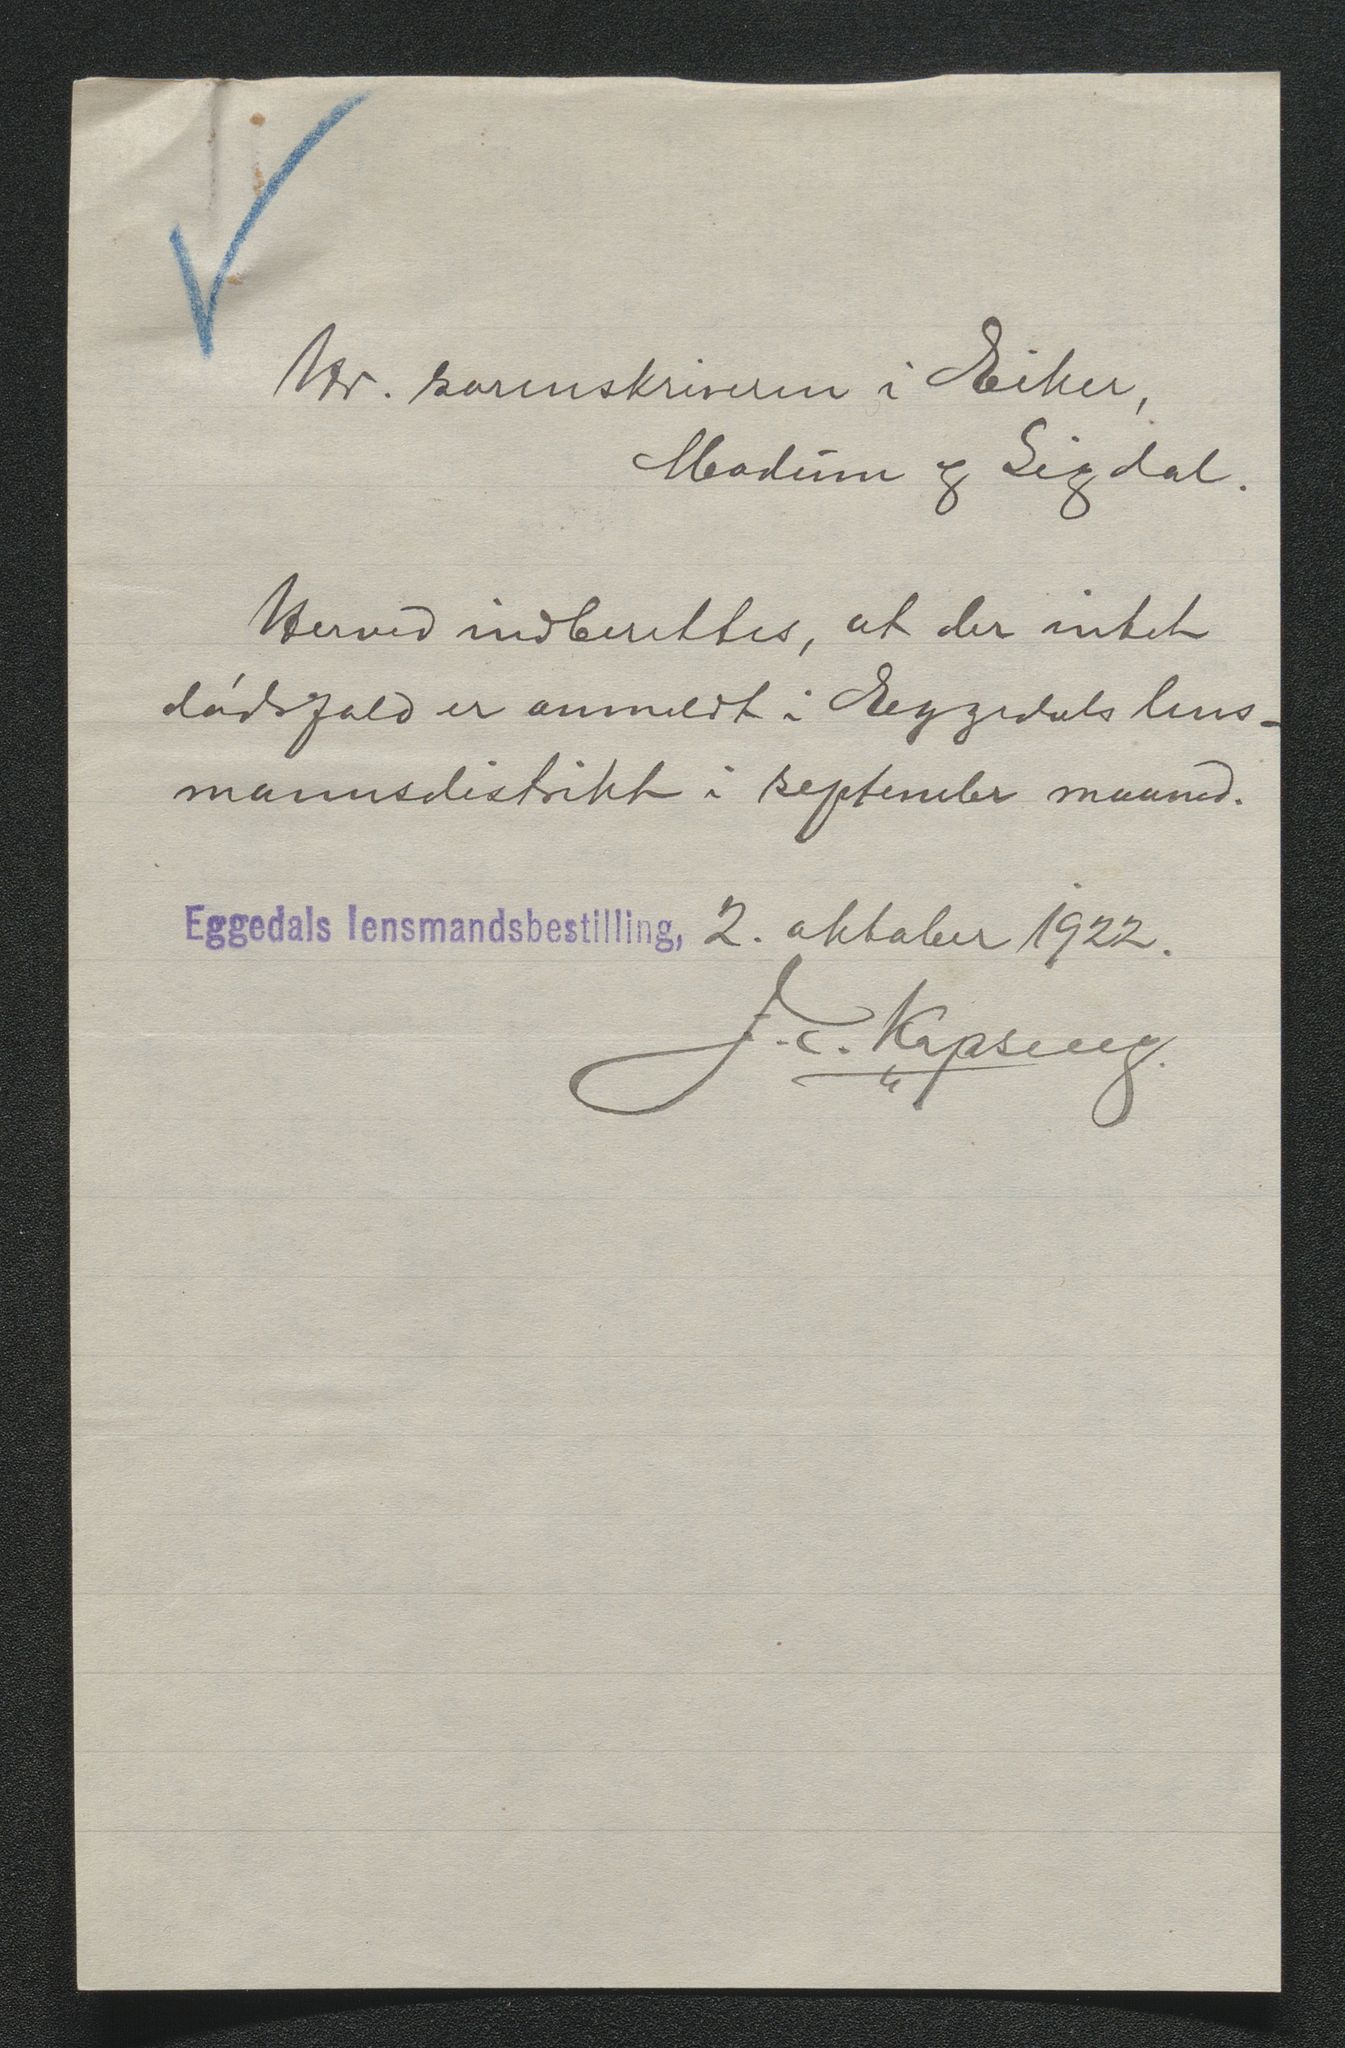 Hr. sorenskriveren i Eiker,
Modum og Sigdal.
Herved indberettes, at der intet
dødsfald er anmeldt i Eggedals lens-
mannsdistrikt i september maaned.
Eggedals lensmandsbestilling, 2. oktober 1922.
J. C.